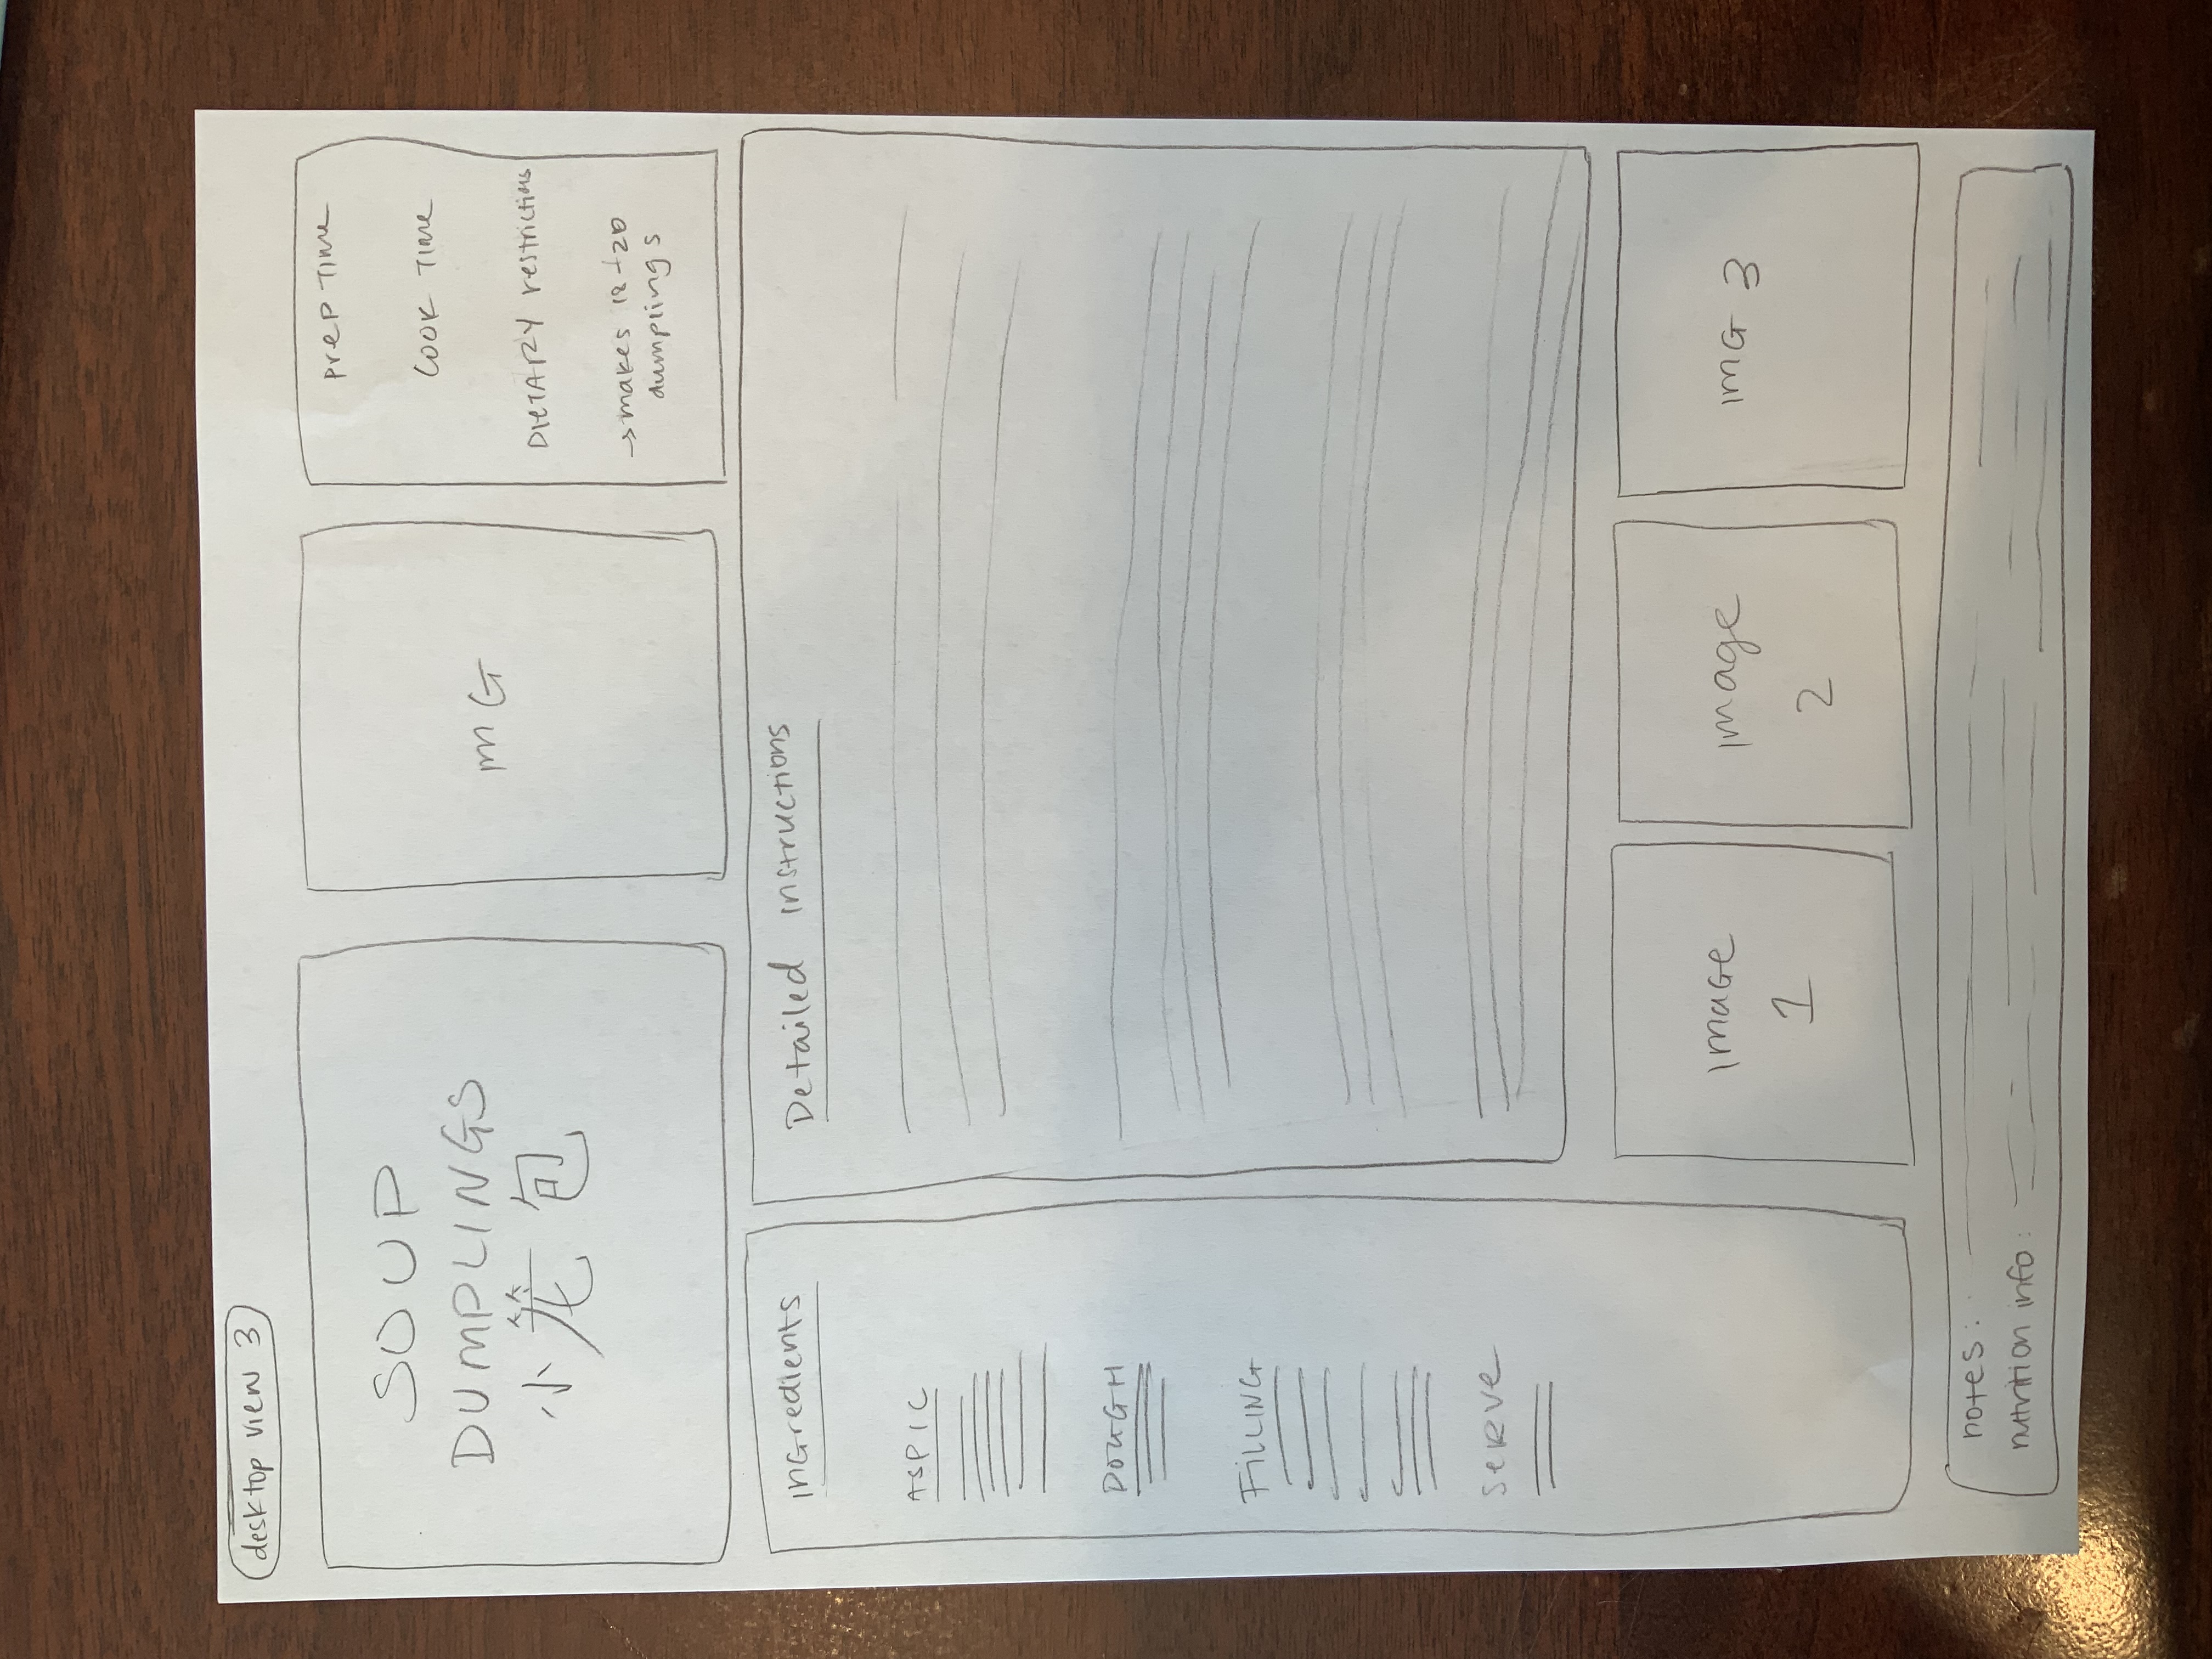 desktop view 3
SOUP
DUMPLINGS
小笼包
mG
Prep Time
Cook Time
DIETARY restrictions
→ makes 18-20
dumplings
ingredients
ASPIC
DOUGH
FILLING
SERVE
Detailed instructions
image
1
image
2
IMG 3
notes:
nutrition info: